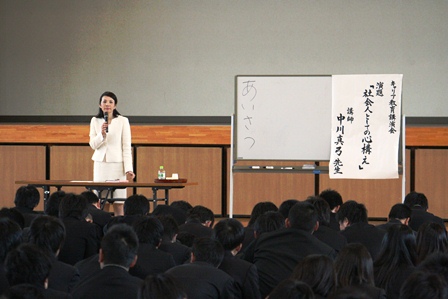 キャリア教育講演会
演題
「社会人としての心構え」
講師
中川真弓先生
あいさつ